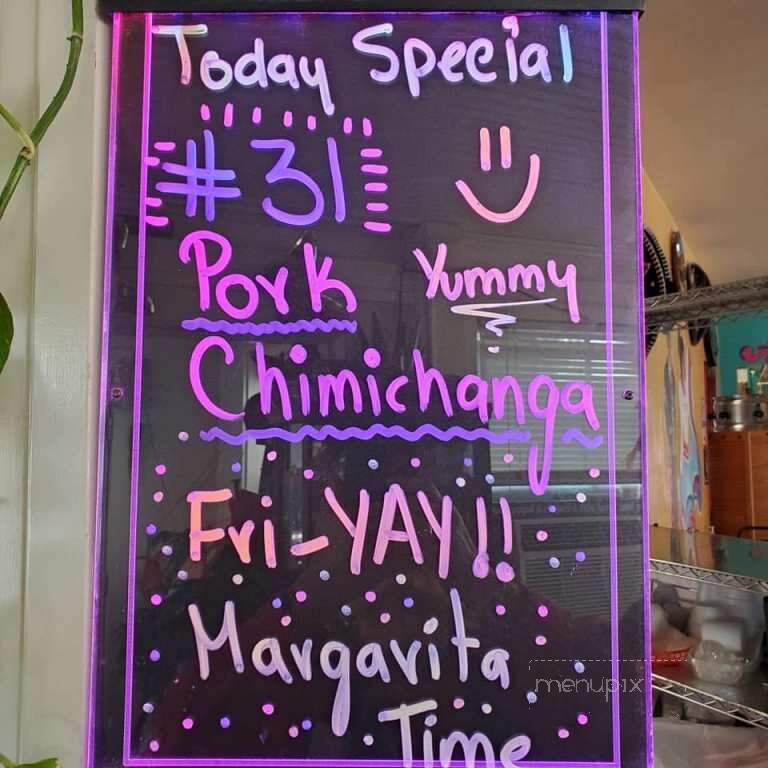 Today Special
#31
Pork Yummy
Chimichanga
Fri-YAY!!
Margarita
Time
menupix